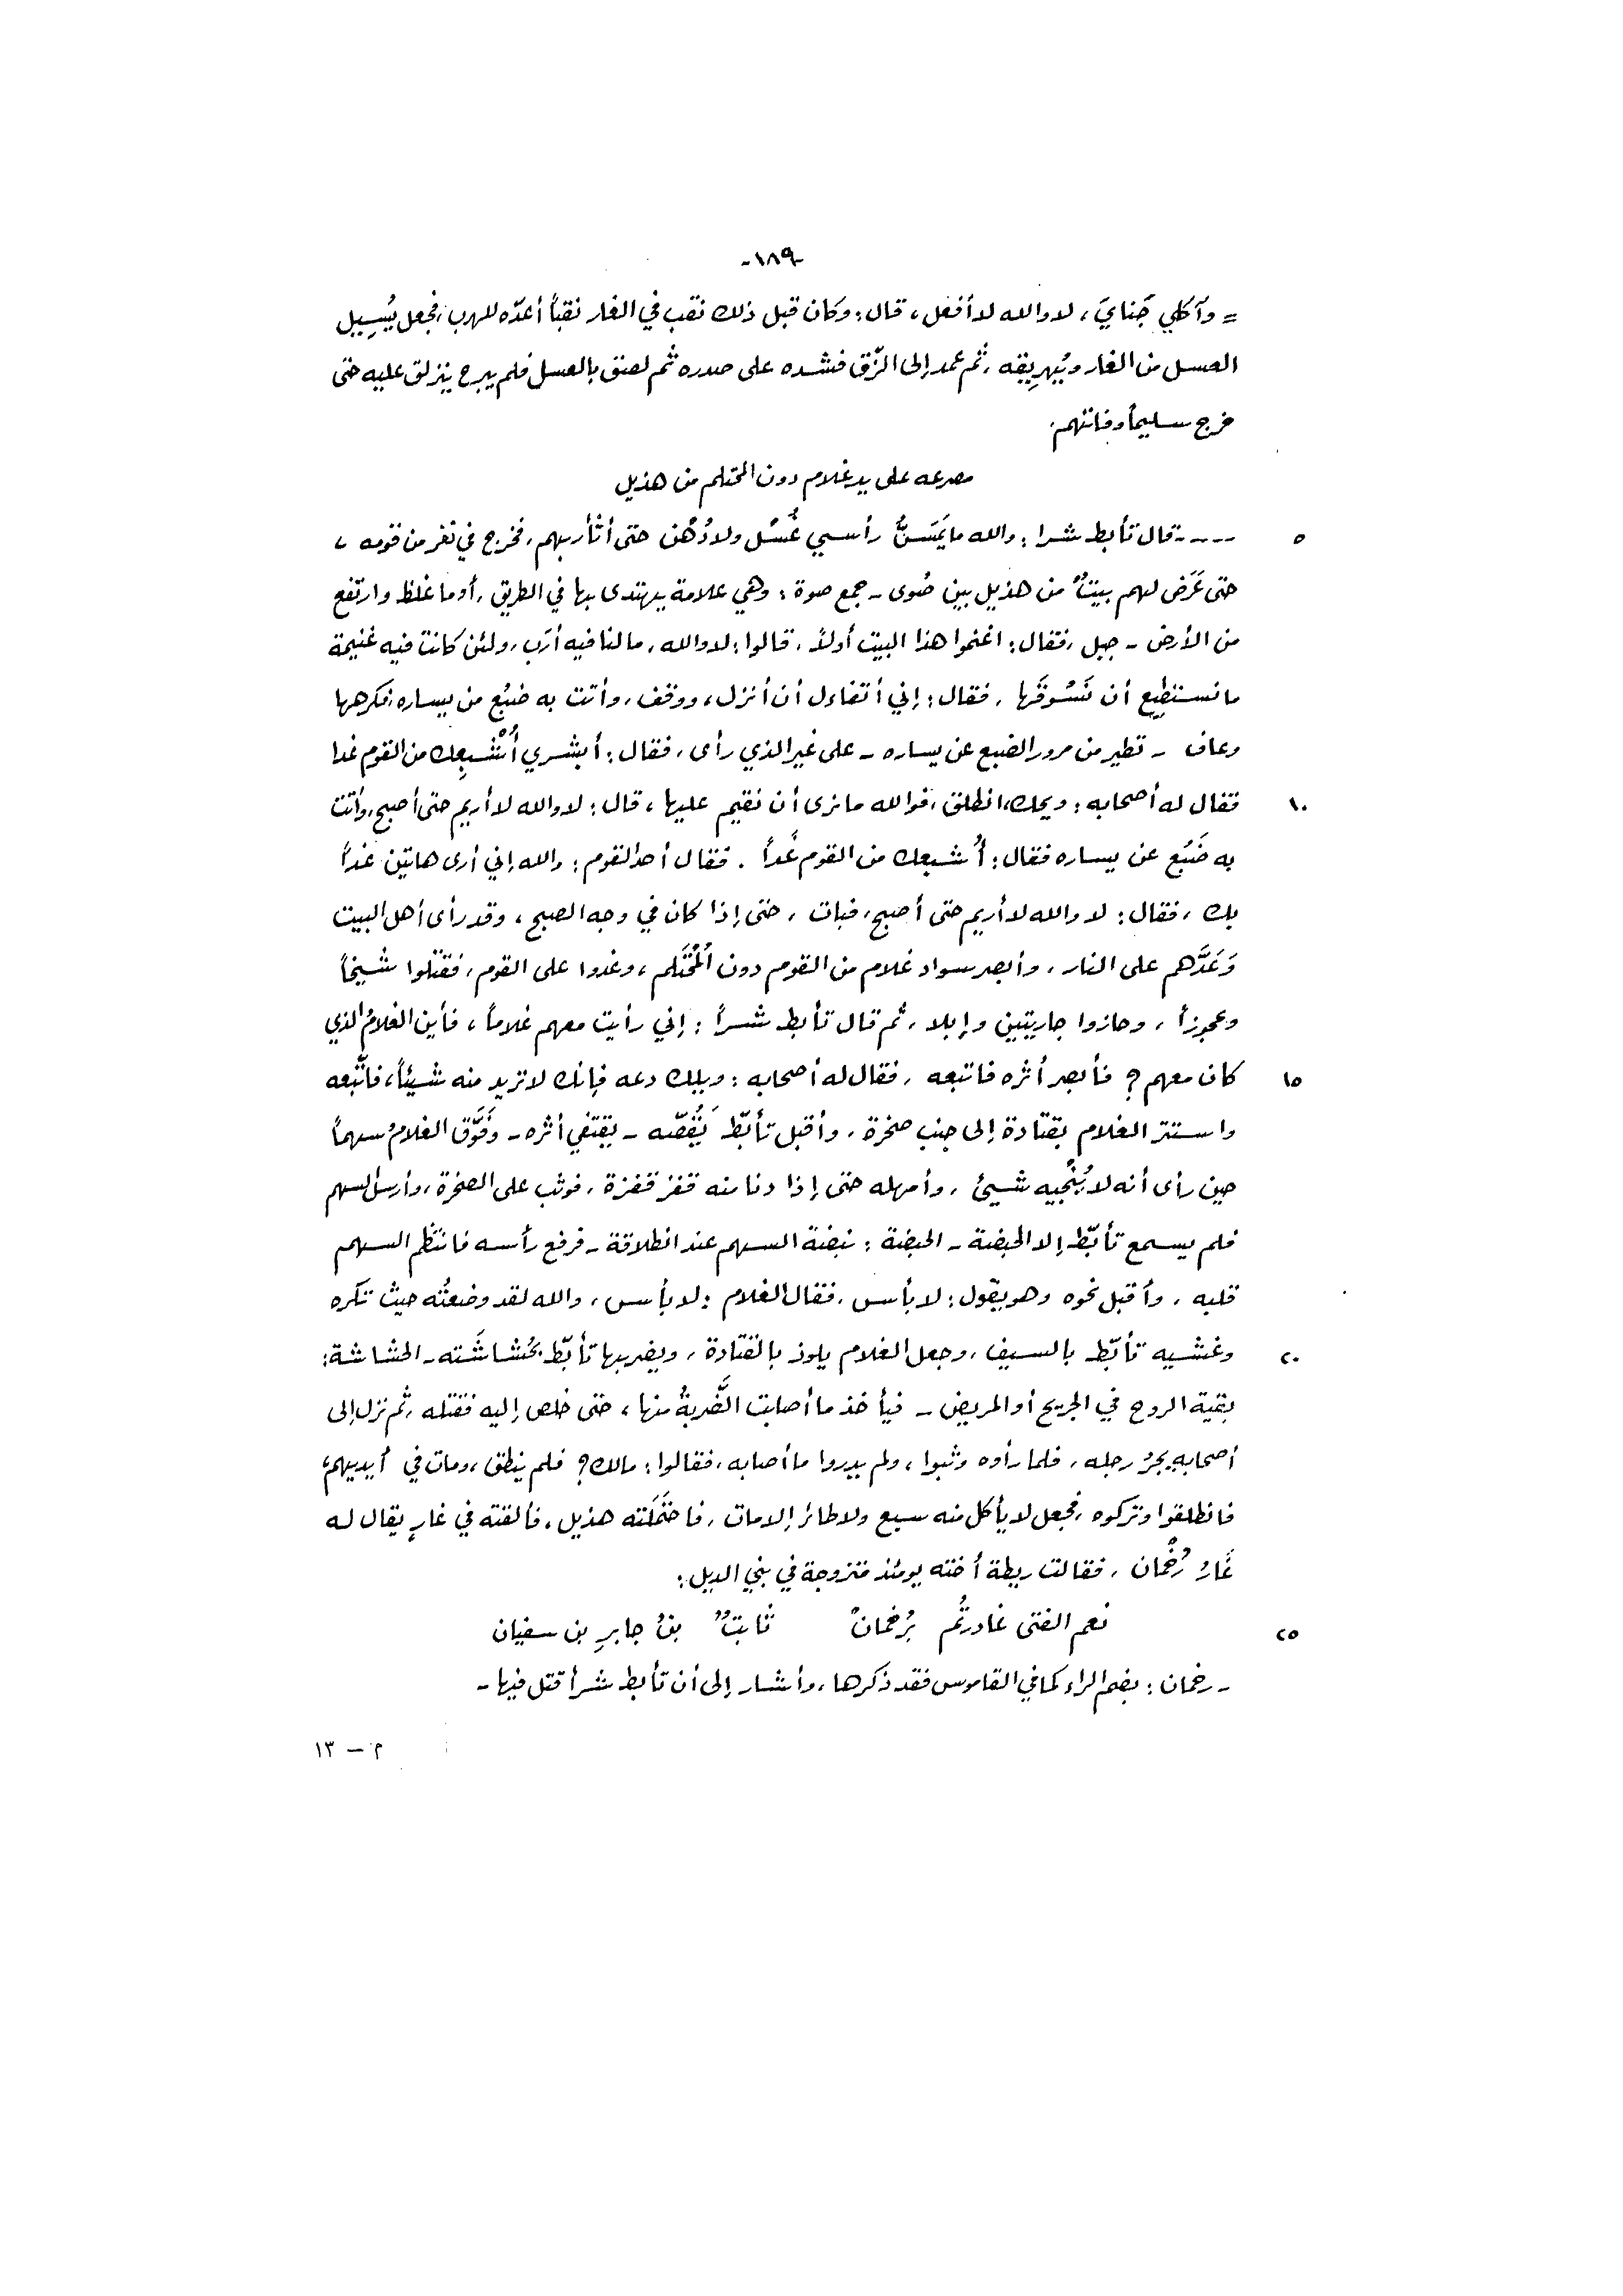 -١٨٩-
= وآكلي جَنايَ، لا والله لا أفعل، قال: وكان قبل ذلك نقب في الغار نقباً أعدّه للهرب، فجعل يُسِيل
العسل من الغار ويُهرِيقه، ثم عمد إلى الزّق فشده على صدره ثم لصق بالعسل فلم يبرح ينزلق عليه حتى
خرج سليماً وفاتهم.
مصرعه على يد غلام دون المحتلم من هذيل
---- قال تأبط شرا: والله ما يَمَسَنُّ رأسي غُسْل ولا دُهْن حتى أثأر بهم، فخرج في نفر من قومه،
٥
حتى عَرَض لهم بيتٌ من هذيل بين صُوى - جمع صوة: وهي علامة يهتدى بها في الطريق، أو ما غلظ وارتفع
من الأرض - جبل، فقال: اغنموا هذا البيت أولاً، قالوا: لا والله، ما لنا فيه أرَب، ولئن كانت فيه غنيمة
ما نستطيع أن نَسُوقَها، فقال: إني أتفاءل أن أنزل، ووقف، وأتت به ضبُع من يساره، فكرهها
وعاف - تطير من مرور الضبع عن يساره - على غير الذي رأى، فقال: أبشري أُشْبِعك من القوم غدا
فقال له أصحابه: ويحك، انطلق، فوالله ما نرى أن نقيم عليها، قال: لا والله لا أريم حتى أصبح، وأتت
١٠
به ضَبُع عن يساره فقال: أُشبعك من القوم غَداً. فقال أحد القوم: والله إني أرى هاتين غداً
بك، فقال: لا والله لا أريم حتى أصبح، فبات، حتى إذا كان في وجه الصبح، وقد رأى أهل البيت
وَعَدَّهم على النار، وأبصر سواد غلام من القوم دون المُحْتَلم، وغدوا على القوم، فقتلوا شيخاً
وعجوزاً، وحازوا جاريتين وإبلا، ثم قال تأبط شراً: إني رأيت معهم غلاماً، فأين الغلامُ الذي
كان معهم؟ فأبصر أثره فاتبعه، فقال له أصحابه: ويلك دعه فإنك لا تريد منه شيئاً، فاتَّبعه
١٥
واستتر الغلام بقَتادة إلى جنب صخرة، وأقبل تأبّط يَقُصّه - يقتفي أثره - وفَوَّق الغلامُ سهماً
حين رأى أنه لا يُنْجيه شيئ، وأمهله حتى إذا دنا منه قفز قفزة، فوثب على الصخرة، وأرسل السهم
فلم يسمع تأبّط إلا الحبضة - الحبضة: نبضة السهم عند انطلاقة - فرفع رأسه فانتظم السهم
قلبه، وأقبل نحوه وهو يقول: لا بأس، فقال الغلام: لا بأس، والله لقد وضعتُه حيث تكره
وغشيه تأبّط بالسيف، وجعل الغلام يلوذ بالقتادة، ويضربها تأبّط بحُشاشَته - الحشاشة:
٢٠
بقية الروح في الجريح أو المريض - فيأخذ ما أصابت الضَّربةُ منها، حتى خلص إليه فقتله، ثم نزل إلى
أصحابه يجرُ رجله، فلما رأوه وثبوا، ولم يدروا ما أصابه، فقالوا: مالك؟ فلم ينطق، ومات في أيديهم،
فانطلقوا وتركوه، فجعل لا يأكل منه سبع ولا طائر إلا مات، فاحتَمَلَته هذيل، فألقته في غارٍ يقال له
غَارُ رُخْمان، فقالت ريطة أخته يومئذ متزوجة في بني الديل:
نعم الفتى غادرتُم برُخمانْ   ثابتٌ بنُ جابرِ بن سفيان
٢٥
- رخمان: بضم الراء كما في القاموس فقد ذكرها، وأشار إلى أن تأبط شراً قتل فيها -
م - ١٣